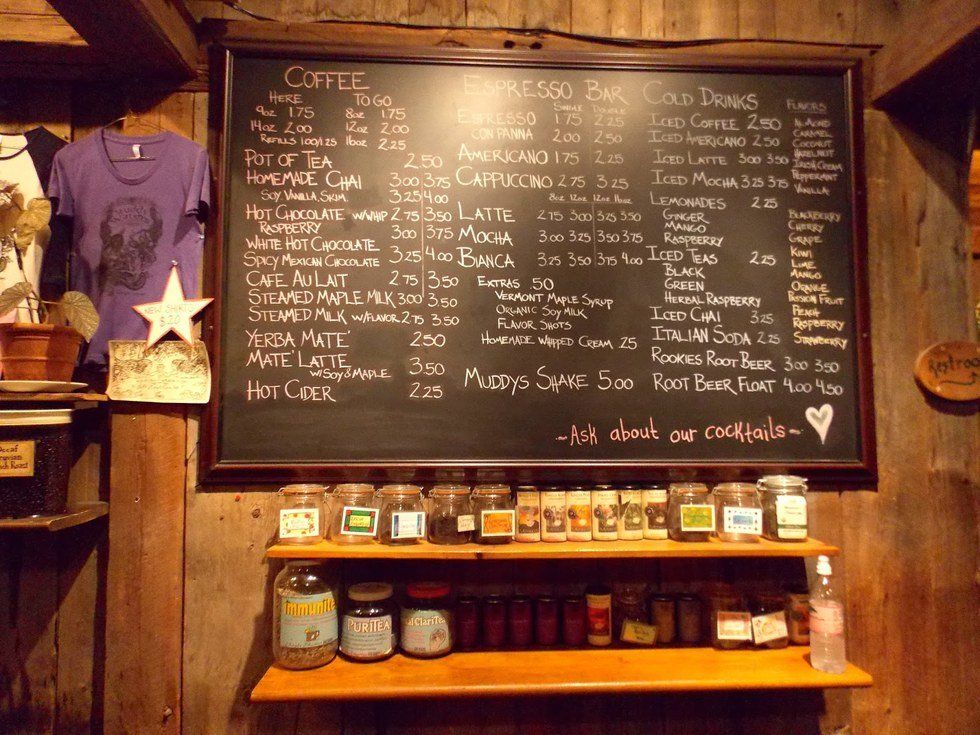 COFFEE
HERE TO GO
9oz 1.75 8oz 1.75
14oz 2.00 12oz 2.00
REFILLS 1.00/1.25 16oz 2.25
POT OF TEA 2.50
HOMEMADE CHAI 3.00 3.75
SOY, VANILLA, SKIM. 3.25 4.00
HOT CHOCOLATE W/WHIP 2.75 3.50
RASPBERRY 3.00 3.75
WHITE HOT CHOCOLATE
SPICY MEXICAN CHOCOLATE 3.25 4.00
CAFE AU LAIT 2.75 3.50
STEAMED MAPLE MILK 3.00 3.50
STEAMED MILK W/FLAVOR 2.75 3.50
YERBA MATE' 2.50
MATE' LATTE 3.50
W/SOY & MAPLE
HOT CIDER 2.25
ESPRESSO BAR
SINGLE DOUBLE
ESPRESSO 1.75 2.25
CON PANNA 2.00 2.50
AMERICANO 1.75 2.25
CAPPUCCINO 2.75 3.25
8oz 12oz 12oz 16oz
LATTE 2.75 3.00 3.25 3.50
MOCHA 3.00 3.25 3.50 3.75
BIANCA 3.25 3.50 3.75 4.00
EXTRAS .50
VERMONT MAPLE SYRUP
ORGANIC SOY MILK
FLAVOR SHOTS
HOMEMADE WHIPPED CREAM .25
MUDDYS SHAKE 5.00
COLD DRINKS
ICED COFFEE 2.50
ICED AMERICANO 2.50
ICED LATTE 3.00 3.50
ICED MOCHA 3.25 3.75
LEMONADES 2.25
GINGER
MANGO
RASPBERRY
ICED TEAS 2.25
BLACK
GREEN
HERBAL RASPBERRY
ICED CHAI 3.25
ITALIAN SODA 2.25
ROOKIES ROOT BEER 3.00 3.50
ROOT BEER FLOAT 4.00 4.50
FLAVORS
ALMOND
CARAMEL
COCONUT
HAZELNUT
IRISH CREAM
PEPPERMINT
VANILLA
BLACKBERRY
CHERRY
GRAPE
KIWI
LIME
MANGO
ORANGE
PASSION FRUIT
PEACH
RASPBERRY
STRAWBERRY
-Ask about our cocktails-
NEW SHIRTS
Restroom
Decaf
immunit
PURITEA
al ClariTea